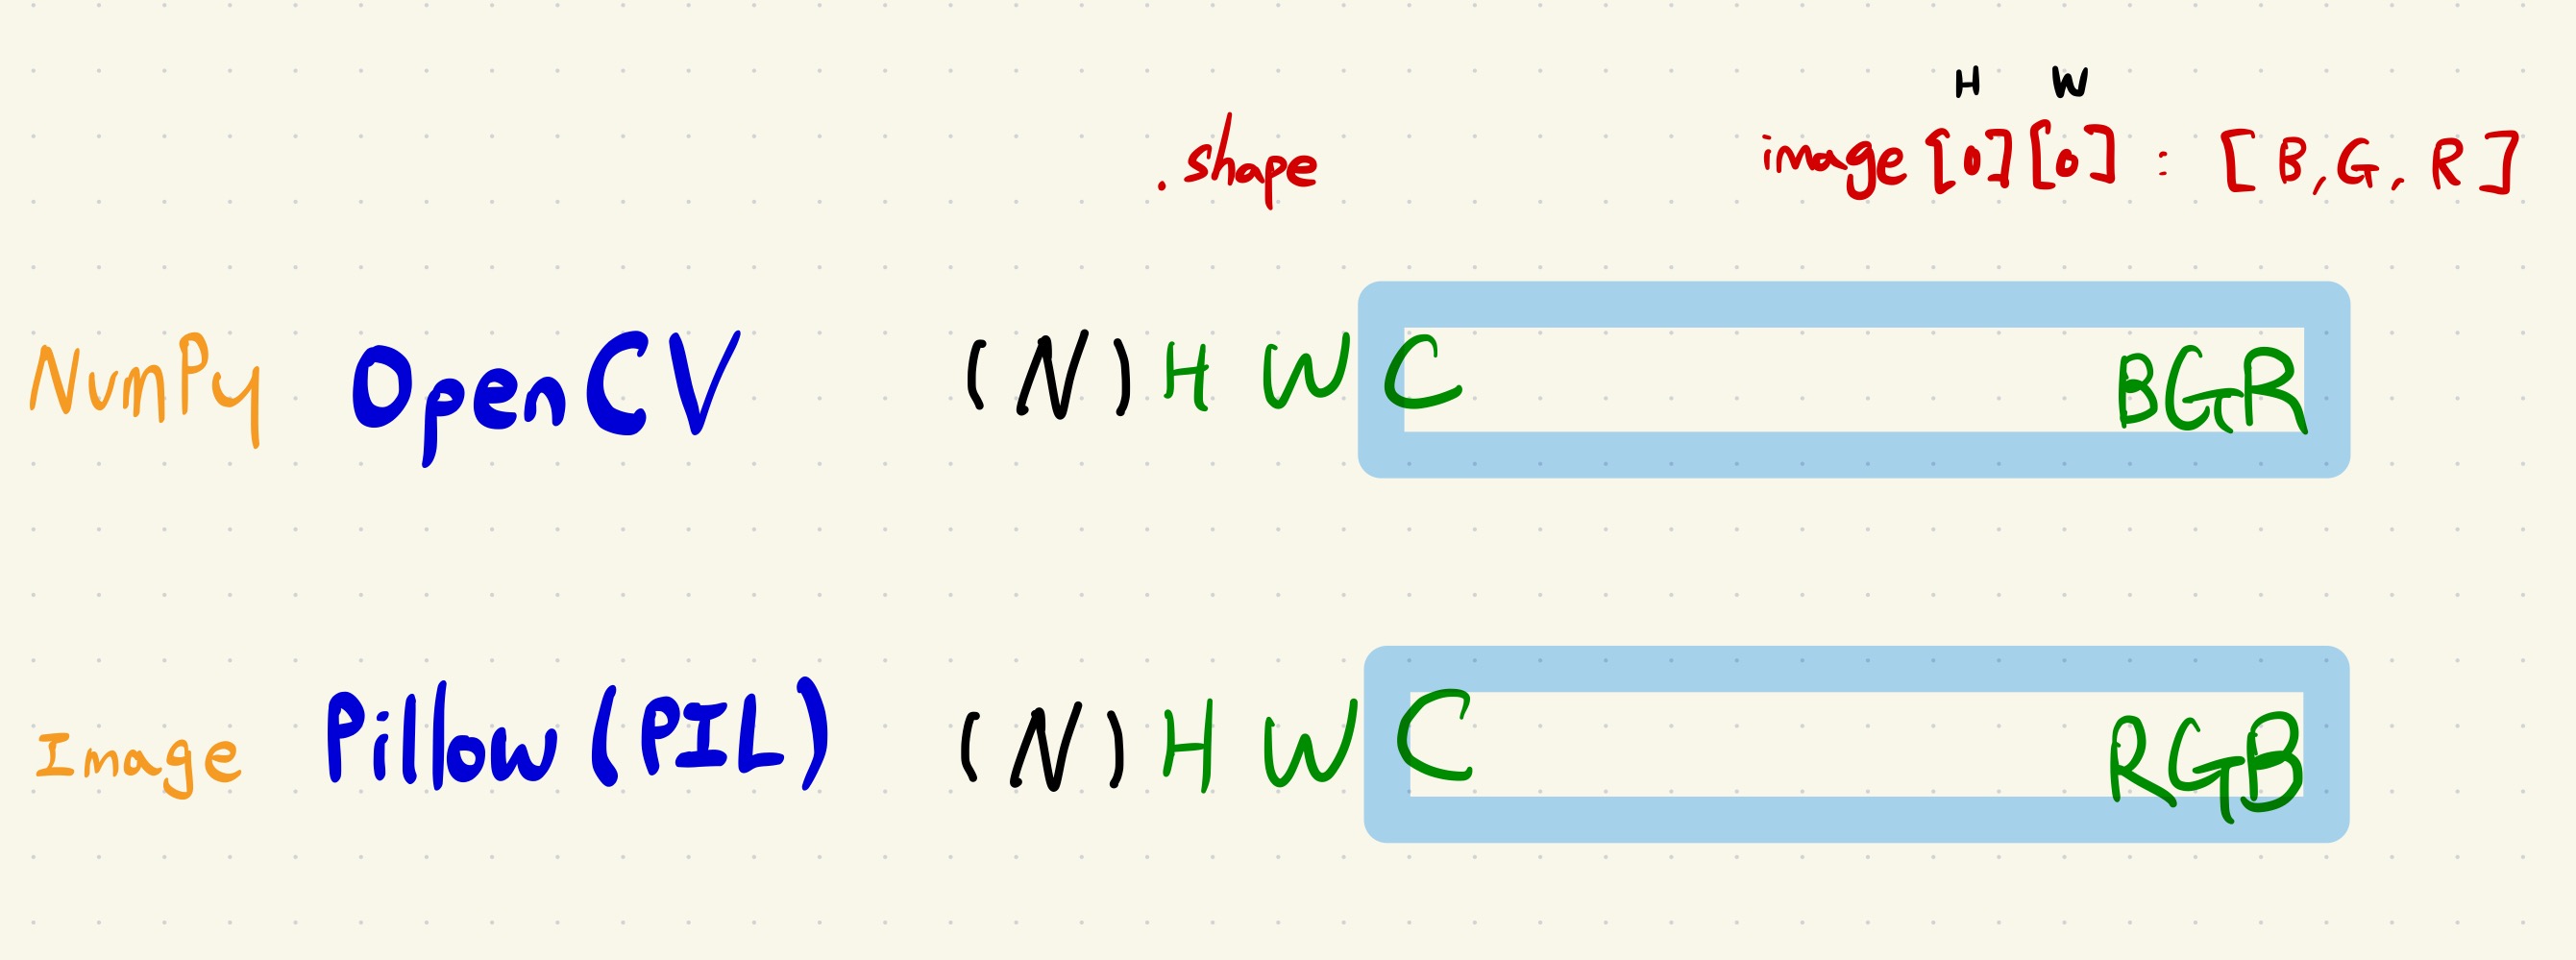 H W
.shape image[0][0] : [B,G,R]
NumPy OpenCV (N) H W C BGR
Image Pillow (PIL) (N) H W C RGB